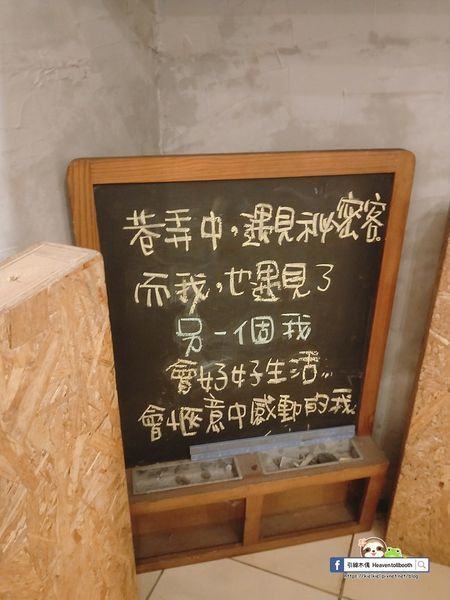 巷弄中,遇見秘密客.
而我,也遇見了
另一個我
會好好生活...
會愜意中感動的我.
引線木偶 Heaventollbooth
https://kielkiel.pixnet.net/blog